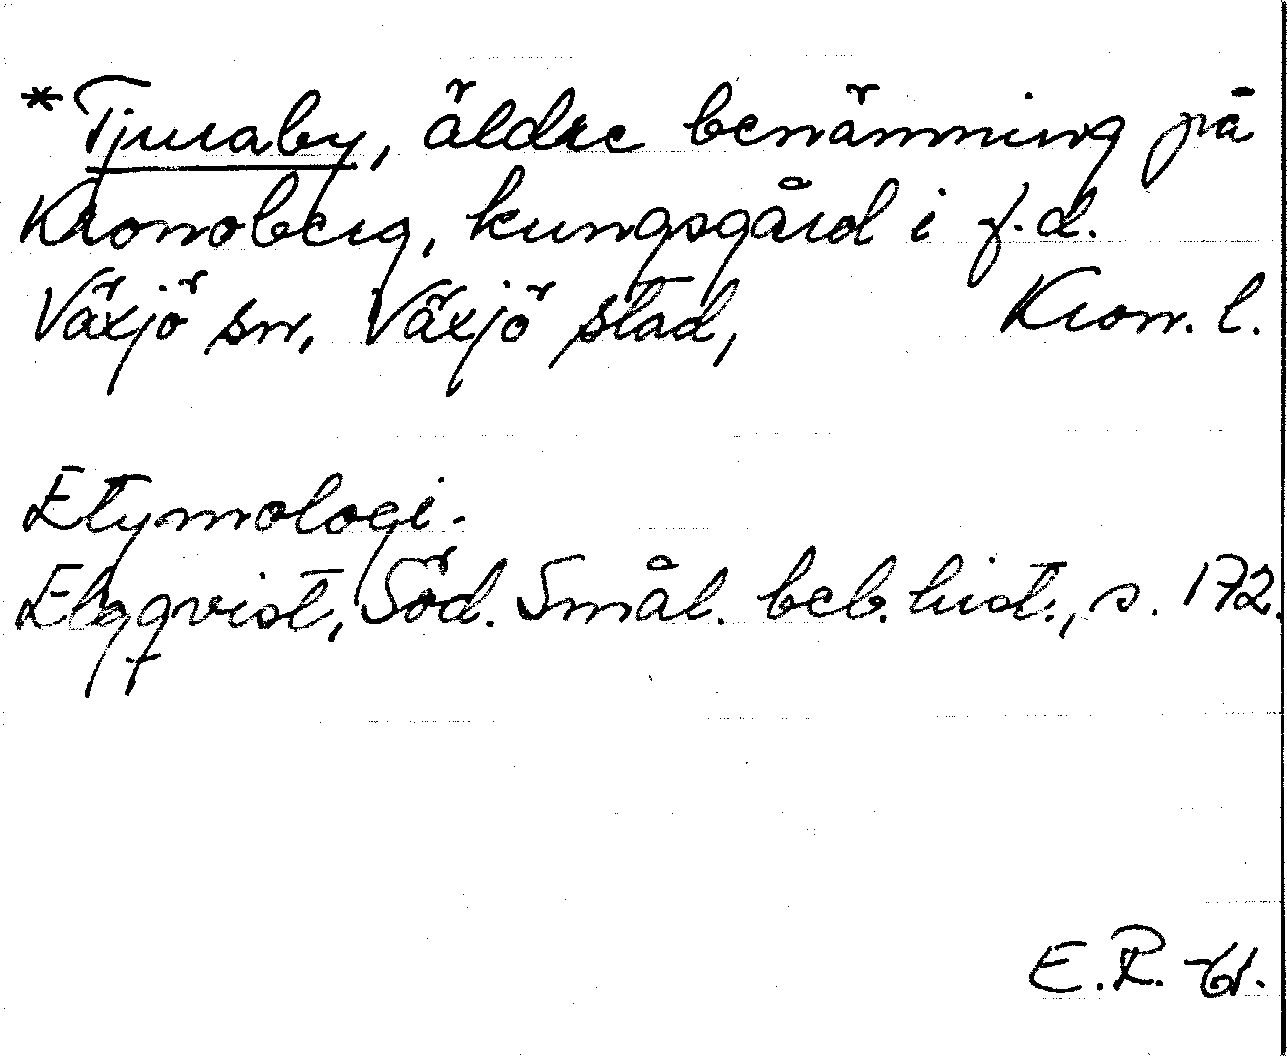 *Tjuraby, äldre benämning på
Kronoberg, kungsgård i f.d.
Växjö sn, Växjö stad, Kron. l.
Etymologi.
Elgqvist, Söd. Smål. beb.hist., s. 172.
E.R.